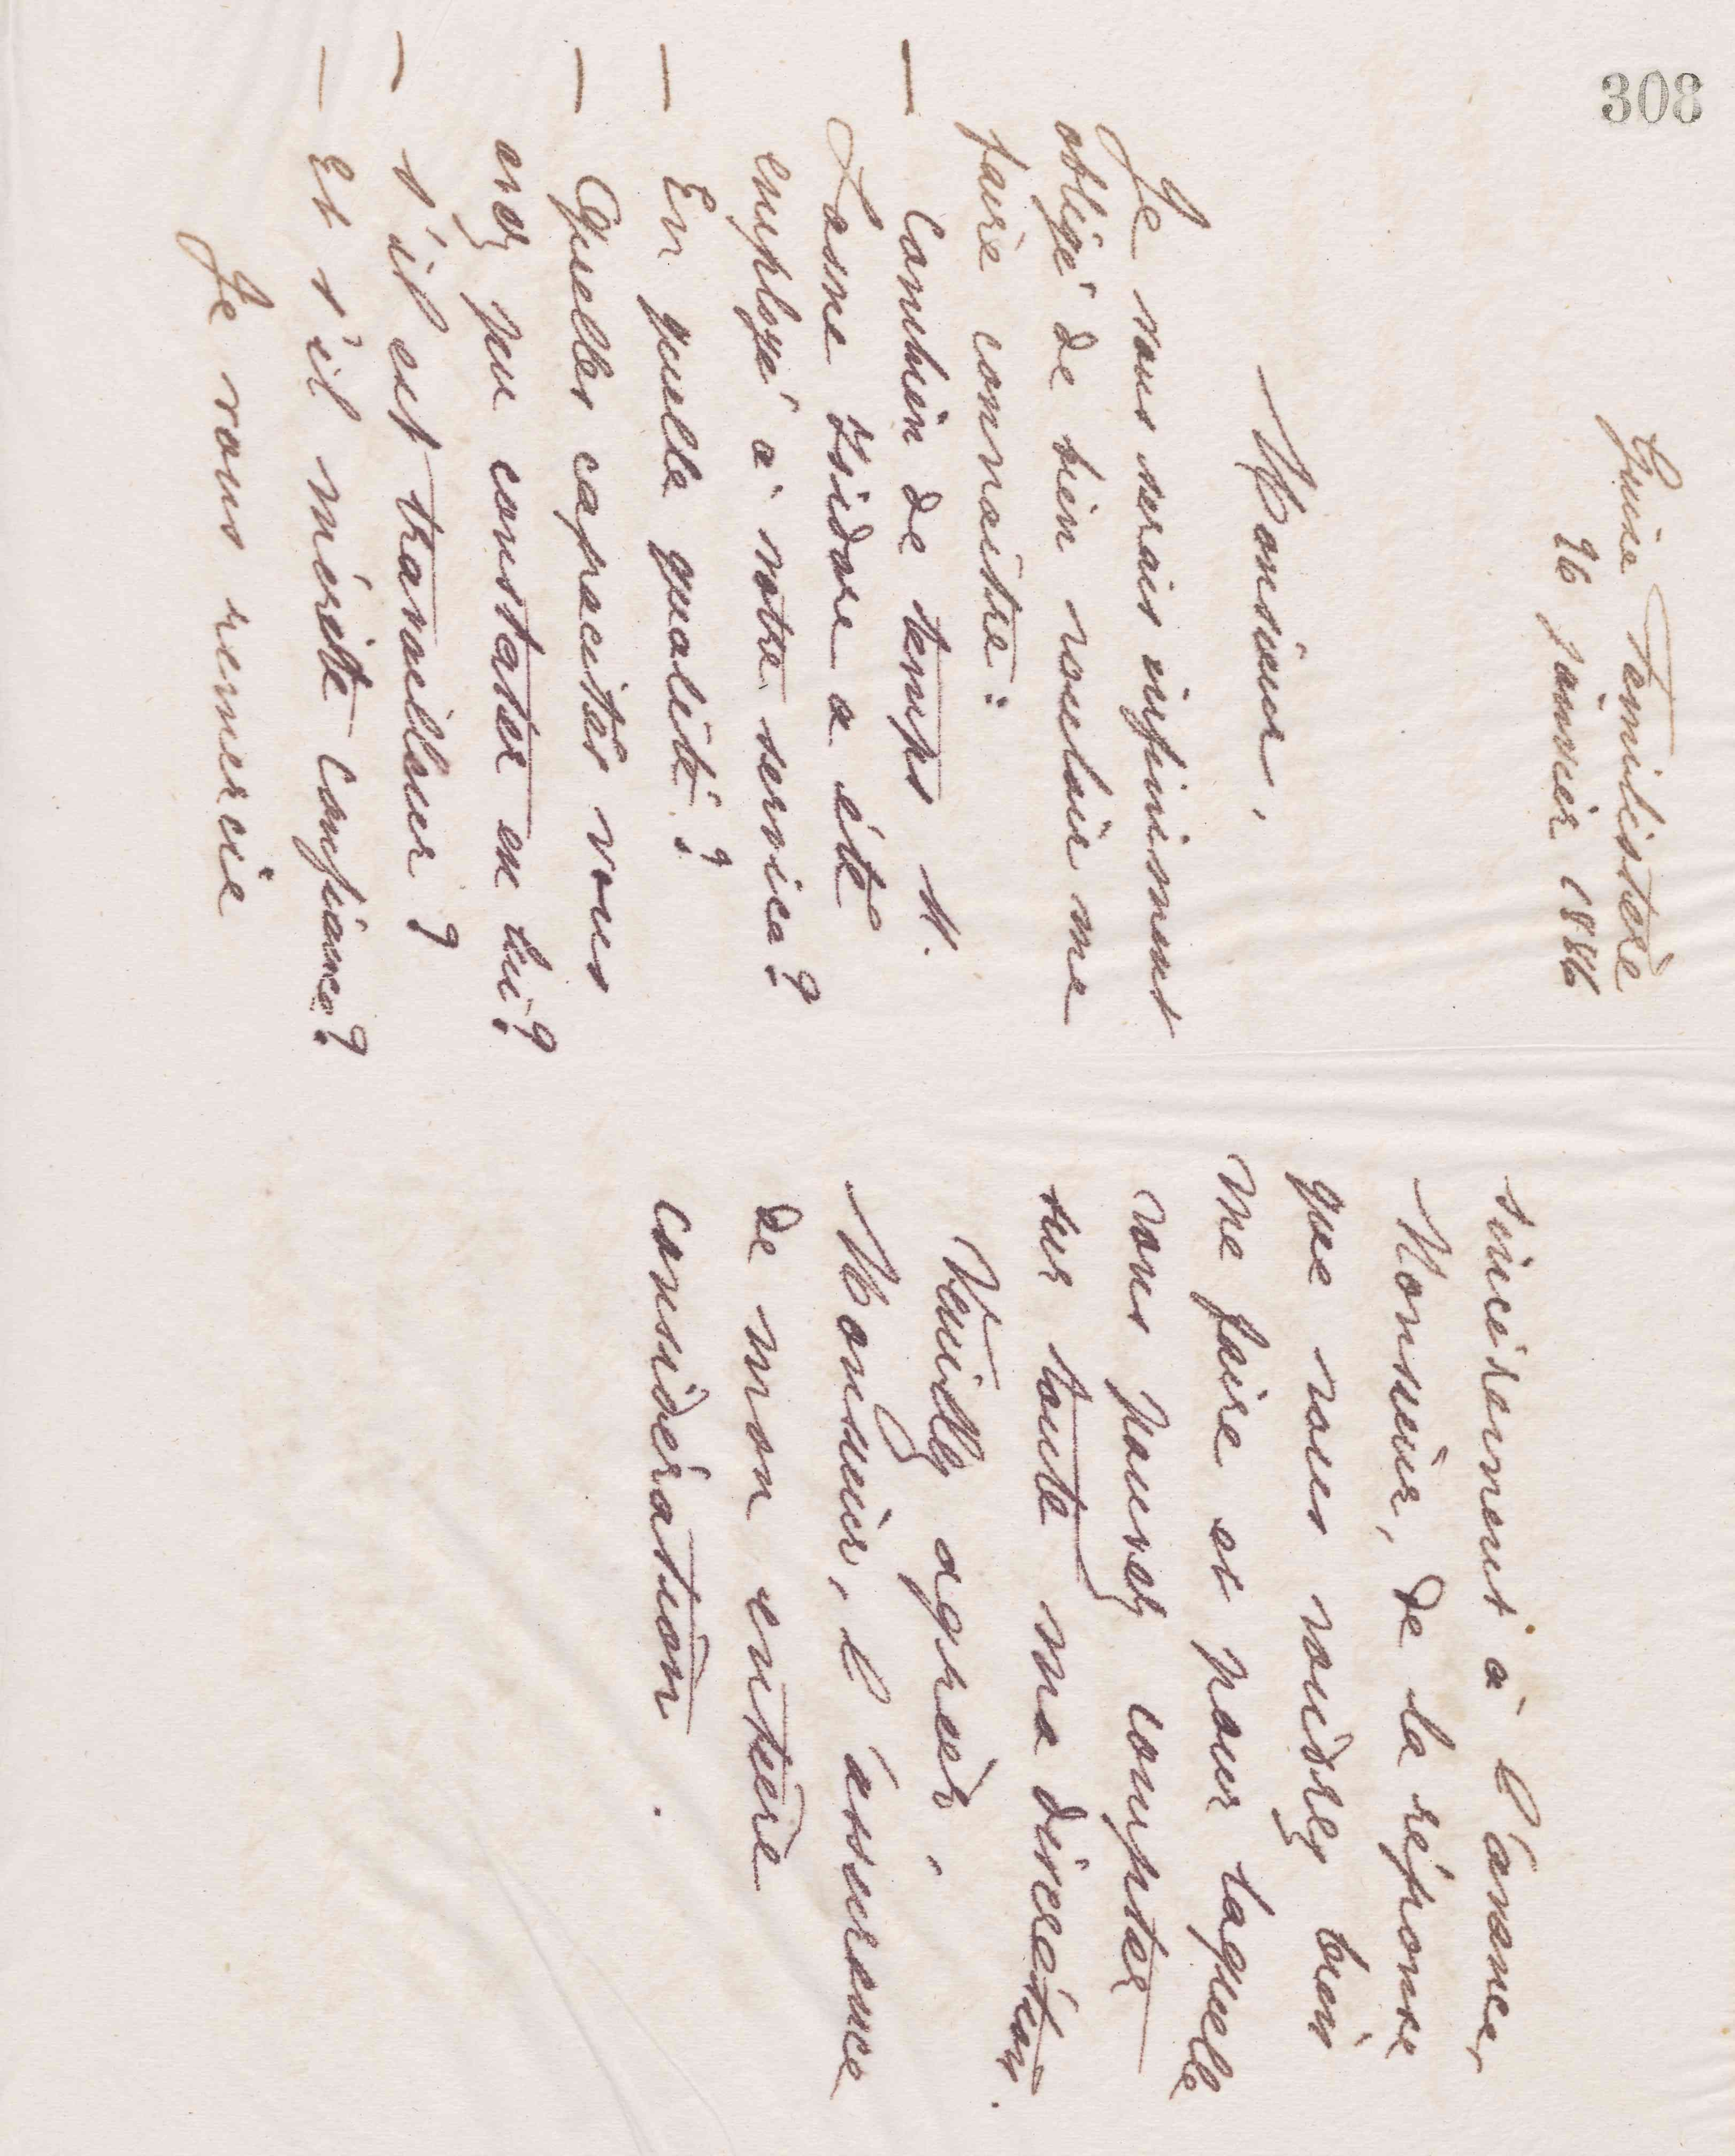 308
Guise Familistère
26 janvier 1886
Monsieur,
Je vous serais infiniment
obligé de bien vouloir me
faire connaître :
— Combien de temps M.
Lasne Isidore a été
employé à votre service ?
— En quelle qualité ?
— Quelles capacités vous
avez pu constater en lui ?
— s'il est travailleur ?
— Et s'il mérite confiance ?
Je vous remercie
sincèrement à l'avance,
Monsieur, de la réponse
que vous voudrez bien
me faire et pour laquelle
vous pouvez compter
sur toute ma discrétion.
Veuillez agréer,
Monsieur, l'assurance
de mon entière
considération.